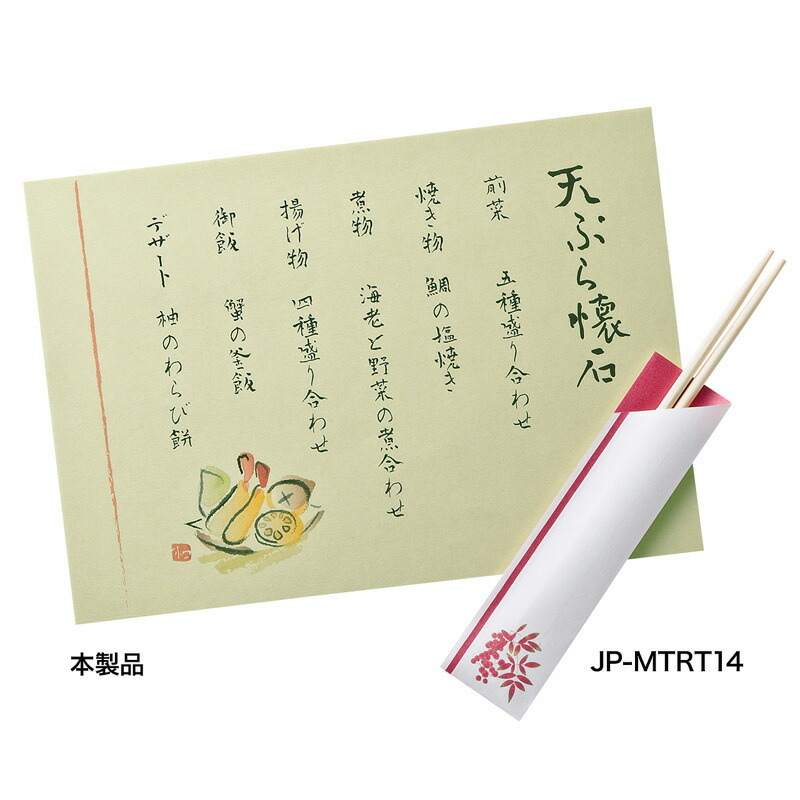 天ぷら懐石
前菜 五種盛り合わせ
焼き物 鯛の塩焼き
煮物 海老と野菜の煮合わせ
揚げ物 四種盛り合わせ
御飯 蟹の釜飯
デザート 柚のわらび餅
本製品
JP-MTRT14